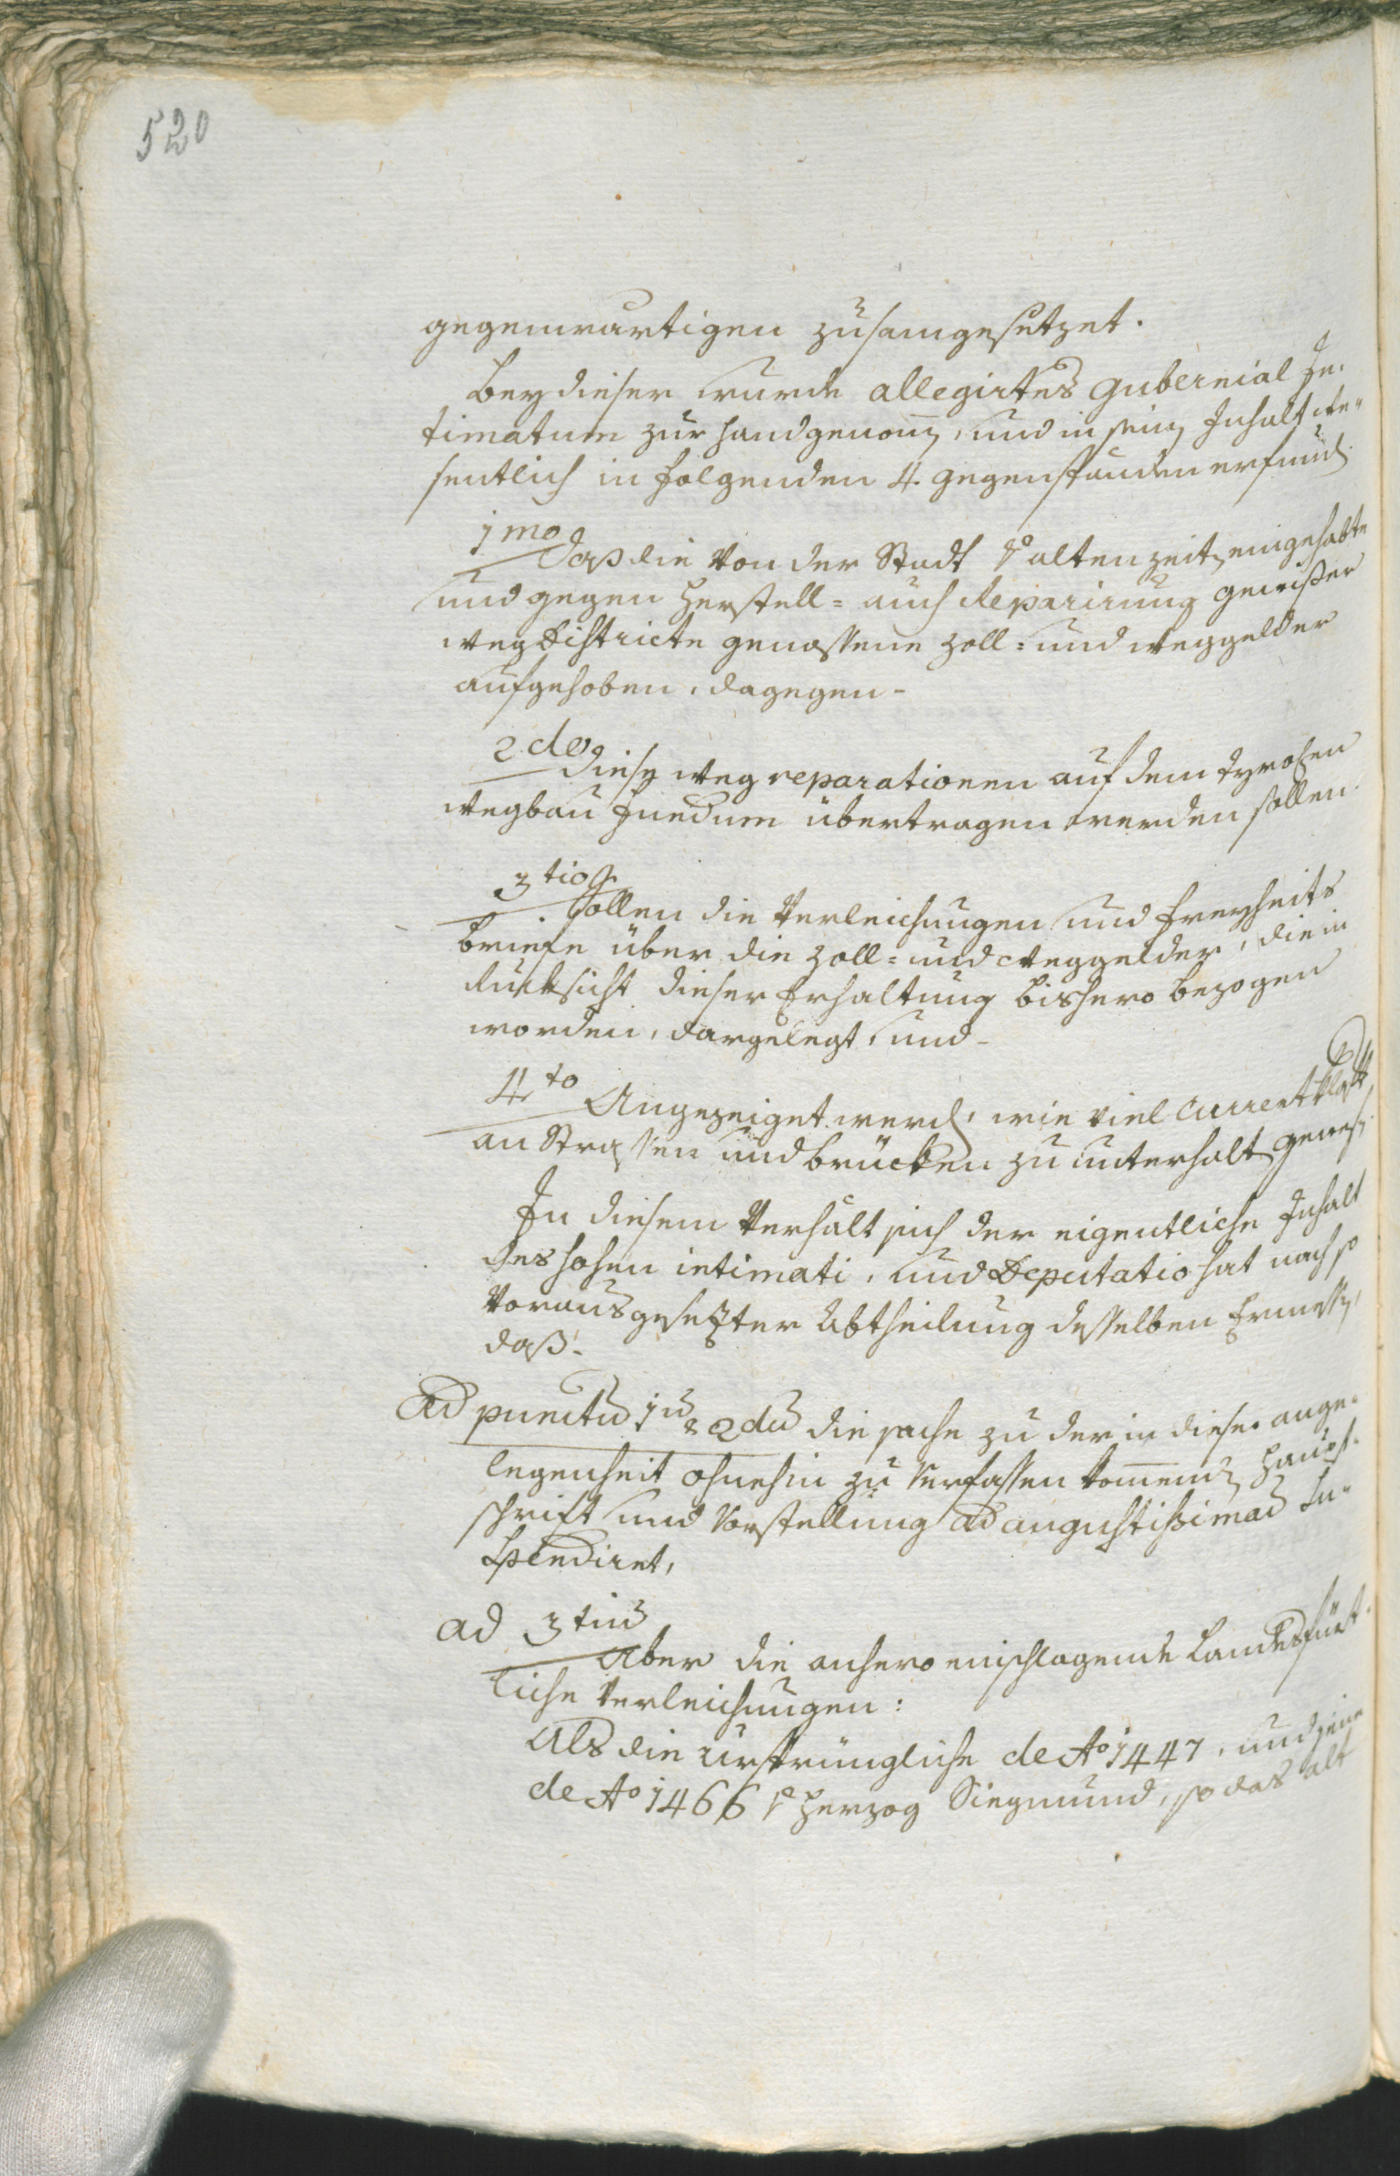 520
gegenwärtigen zusamgesetzet.
Bey dieser wurde allegirtes Gubernial In-
timatum zur hand genom̄en, und in sein Inhalt we-
sentlich in folgenden 4. gegenständen erfund.
1mo daß die von der Stadt alten zeiten eingehabte
und gegen Herstell- auch Reparirung gewißer
weg Districte genossene Zoll- und weggelder
aufgehoben, dagegen -
2do diese weg reparationen auf dem Tyrolsen
wegbau Fundum übertragen werden sollen.
3tio Sollen die Verleichungen und Freyheits
briefe über die Zoll- und weggelder, die in
Rucksicht dieser Erhaltung bishero bezogen
worden, dargelegt, und -
4to Angezeiget werd, wie viel Current Klafter
an Strassen und brücken zu unterhalten gewest.
In diesem Verhält sich der eigentliche Inhalt
des hohen intimati, und Deputatio hat nach so
vorausgesetzter Abtheilung desselben Ermessen,
daß:
Ad punctu 1ū & 2dū die sache zu der in dieser ange-
legenheit ohnehin zu verfassen kom̄end Haupt-
schrift und Vorstellung ad augustißimad Su-
spendiret,
ad 3tiū
Aber die anhero einschlagende Landesfürst-
liche Verleichungen:
Als die ursprüngliche de Ao 1447, und jene
de Ao 1466 Herzog Siegmund, so das alt